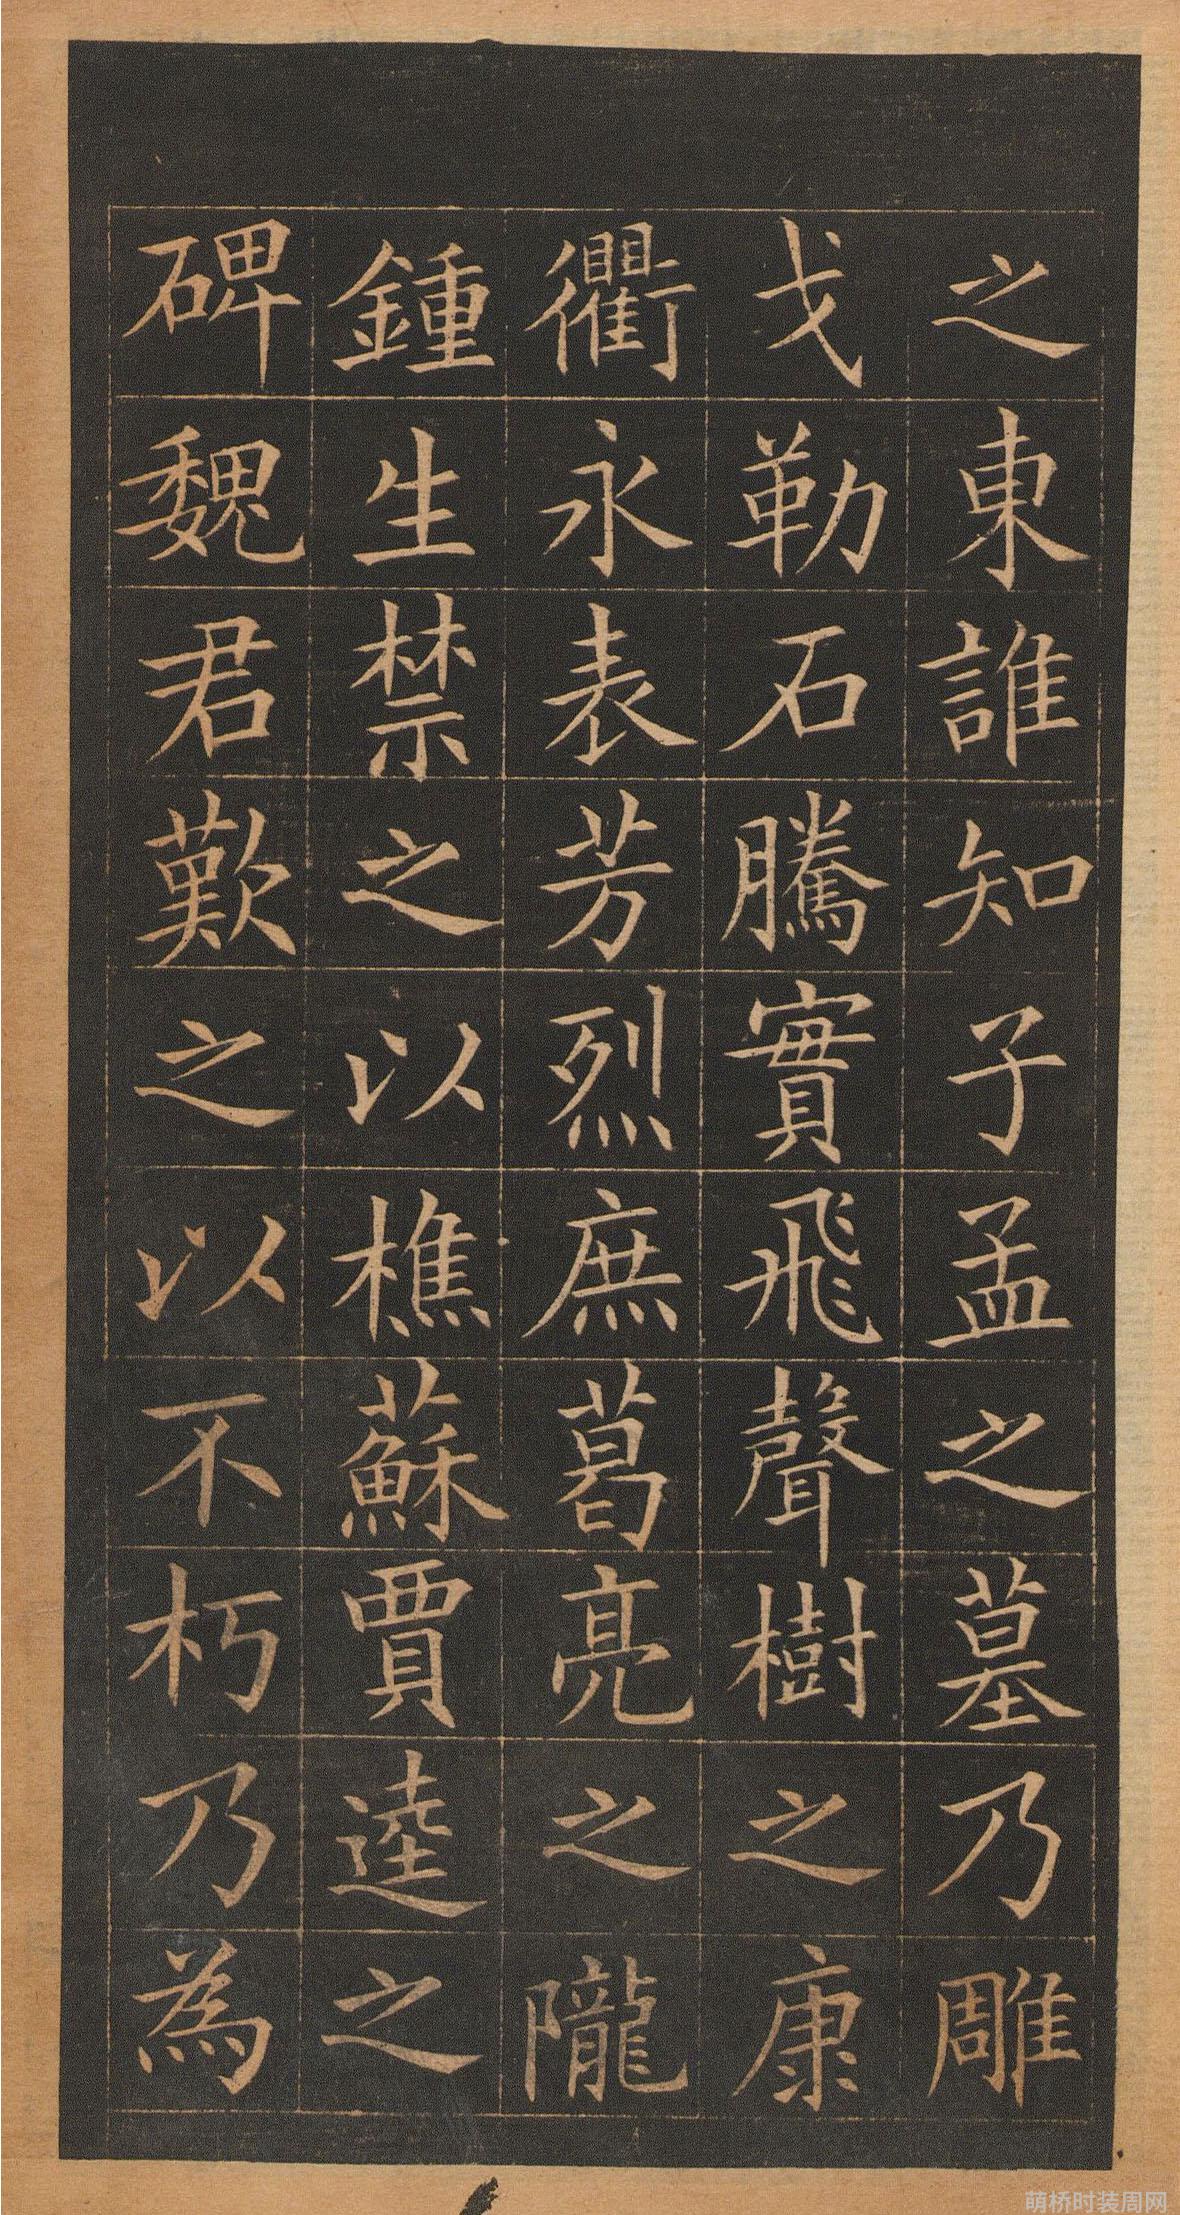 之東誰知子孟之墓乃雕
戈勒石騰實飛聲樹之康
衢永表芳烈庶葛亮之隴
鍾生禁之以樵蘇賈逵之
碑魏君歎之以不朽乃為
萌桥时装周网